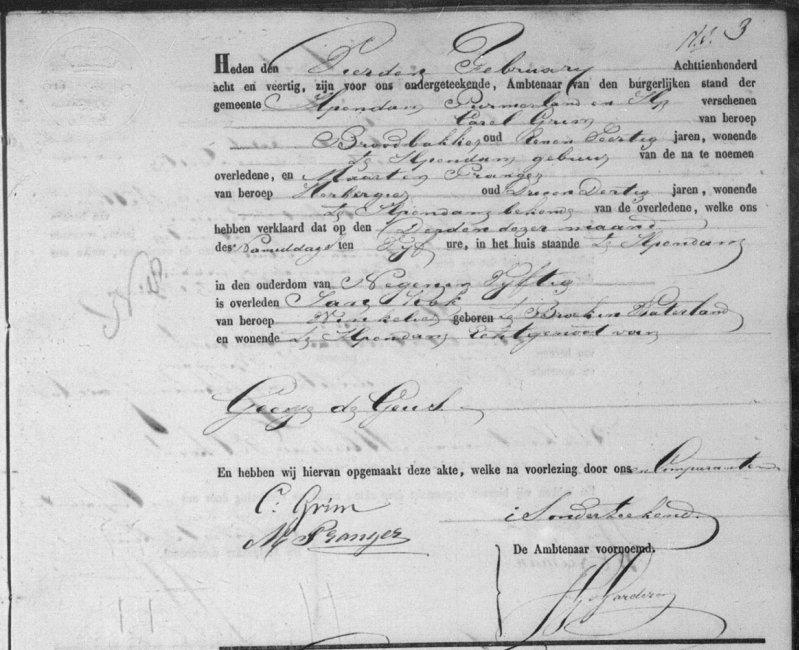 No. 3
Heden den Vierden February Achttienhonderd
acht en veertig, zijn voor ons ondergeteekende, Ambtenaar van den burgerlijken stand der
gemeente Ilpendam Purmerland en Ilp verschenen
Carel Grim van beroep
Broodbakker oud Eenen Veertig jaren, wonende
te Ilpendam gebuur van de na te noemen
overledene, en Maarten Pranger
van beroep Herbergier oud Drieen Dertig jaren, wonende
te Ilpendam bekende van de overledene, welke ons
hebben verklaard dat op den Derden dezer maand
des Namiddags ten Vijf ure, in het huis staande te Ilpendam
in den ouderdom van Negenen Vijftig
is overleden Jan
van beroep Winkelier geboren te Broek in Waterland
en wonende te Ilpendam Echtgenoot van
de Geus
En hebben wij hiervan opgemaakt deze akte, welke na voorlezing door ons en Comparanten
is onderteekend.
C. Grim
M Pranger
De Ambtenaar voornoemd.